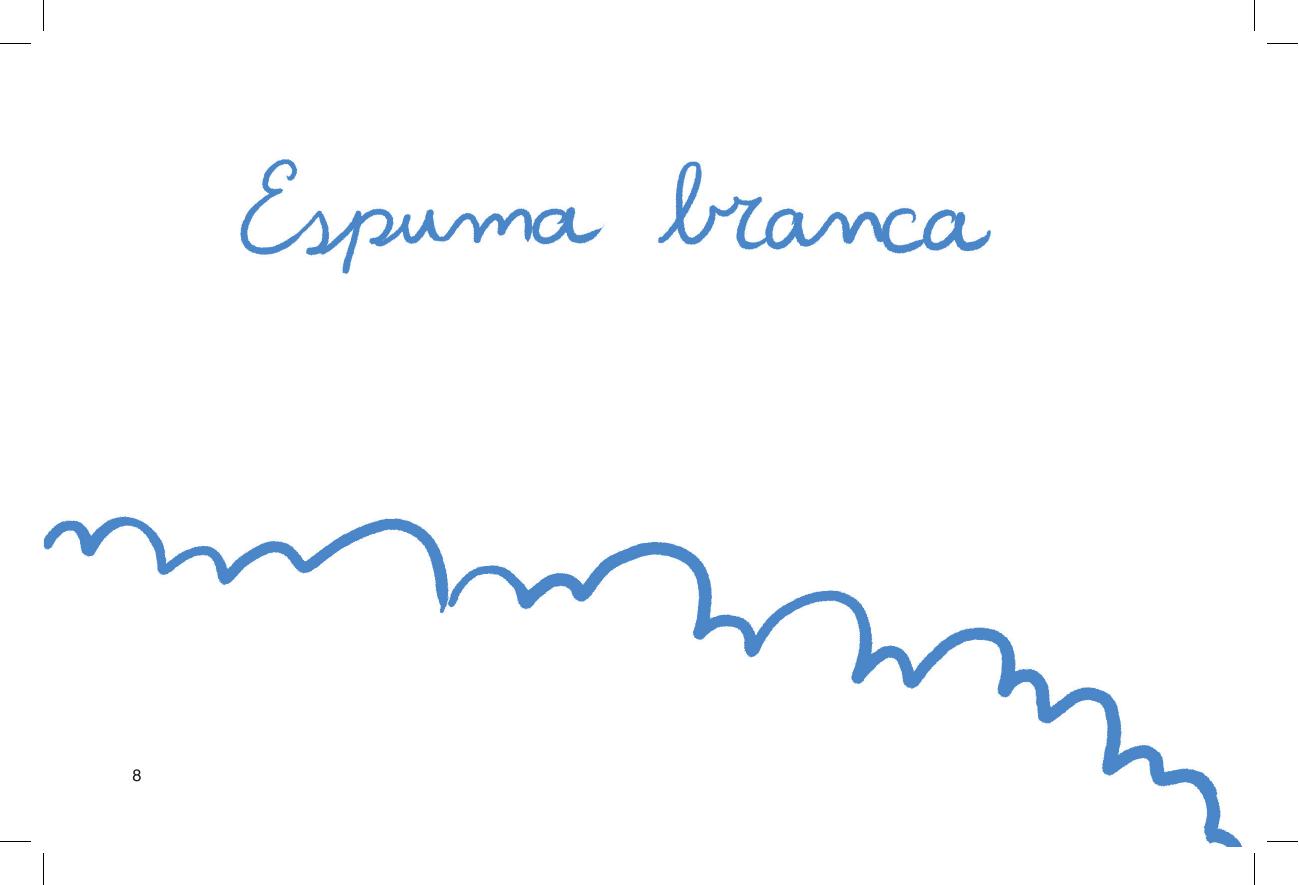 Espuma branca
8